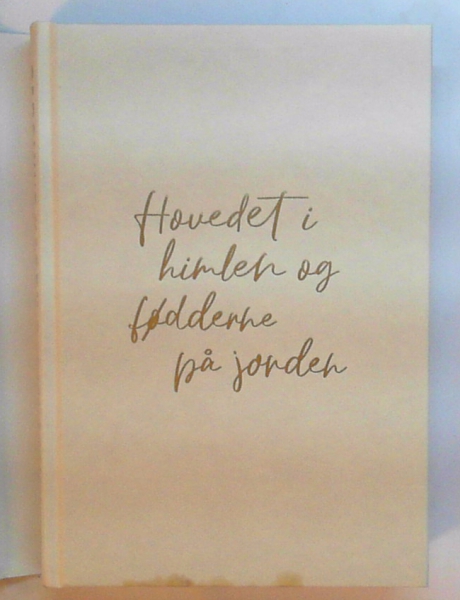 Hovedet i
himlen og
fødderne
på jorden